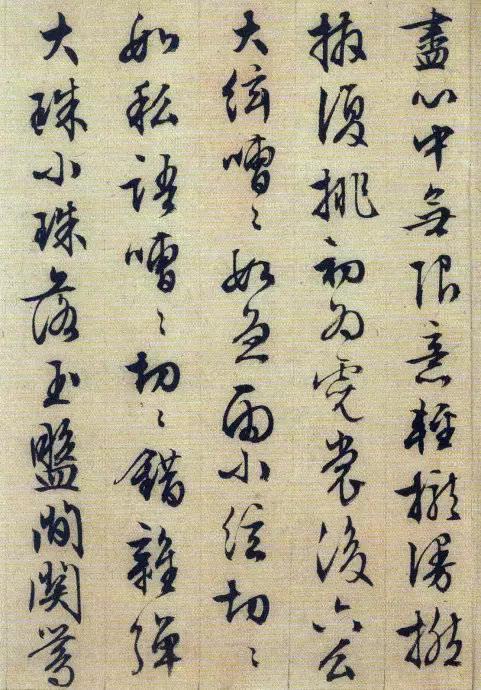 盡心中無限意輕攏漫撚
撥復挑初為霓裳後六么
大絃嘈〻如急雨小絃切〻
如私語嘈〻切〻錯雜彈
大珠小珠落玉盤間關鶯